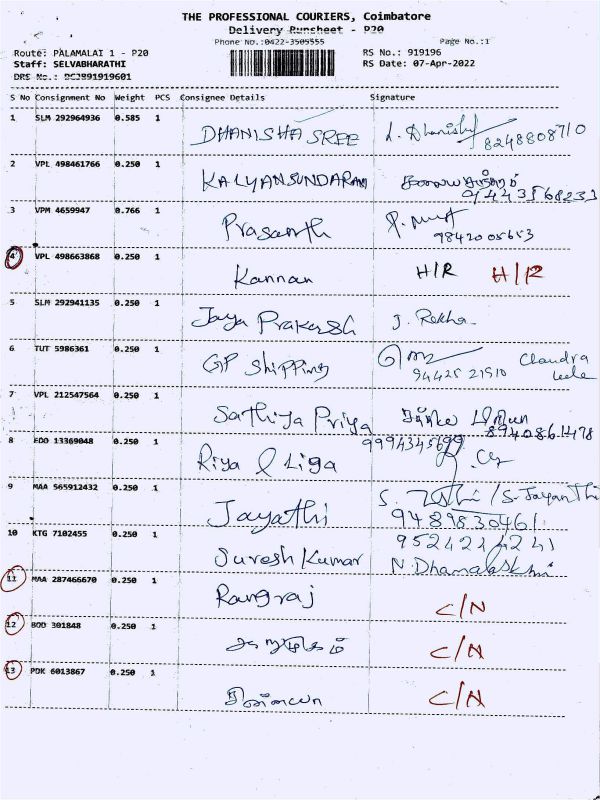 THE PROFESSIONAL COURIERS, Coimbatore
Delivery Runsheet - P20
Phone No.:0422-3505555 Page No.:1
Route: PALAMALAI 1 - P20 RS No.: 919196
Staff: SELVABHARATHI RS Date: 07-Apr-2022
DRS No.:
S No Consignment No Weight PCS Consignee Details Signature
1 SLM 292964936 0.585 1 DHANISHA SREE
8248808710
2 VPL 498461766 0.250 1 KALYANSUNDARAM
9443568233
3 VPM 4659947 0.766 1 Prasanth
9842005653
4 VPL 498663868 0.250 1 Kannan H/R H/R
5 SLM 292941135 0.250 1 Jaya Prakash J. Rekha
6 TUT 5986361 0.250 1 GP Shipping Chandra
94425 21510
7 VPL 212547564 0.250 1 Sathiya Priya
8940861478
8 EDO 13369048 0.250 1 Riya & Liga
9 MAA 565912432 0.250 1 Jayathi S. /S. Jayanthi
9489830461
10 KTG 7102455 0.250 1 Suresh Kumar 9524214241
11 MAA 287466670 0.250 1 Rangraj C/N
12 BOD 301848 0.250 1 C/N
13 PDK 6013867 0.250 1 C/N